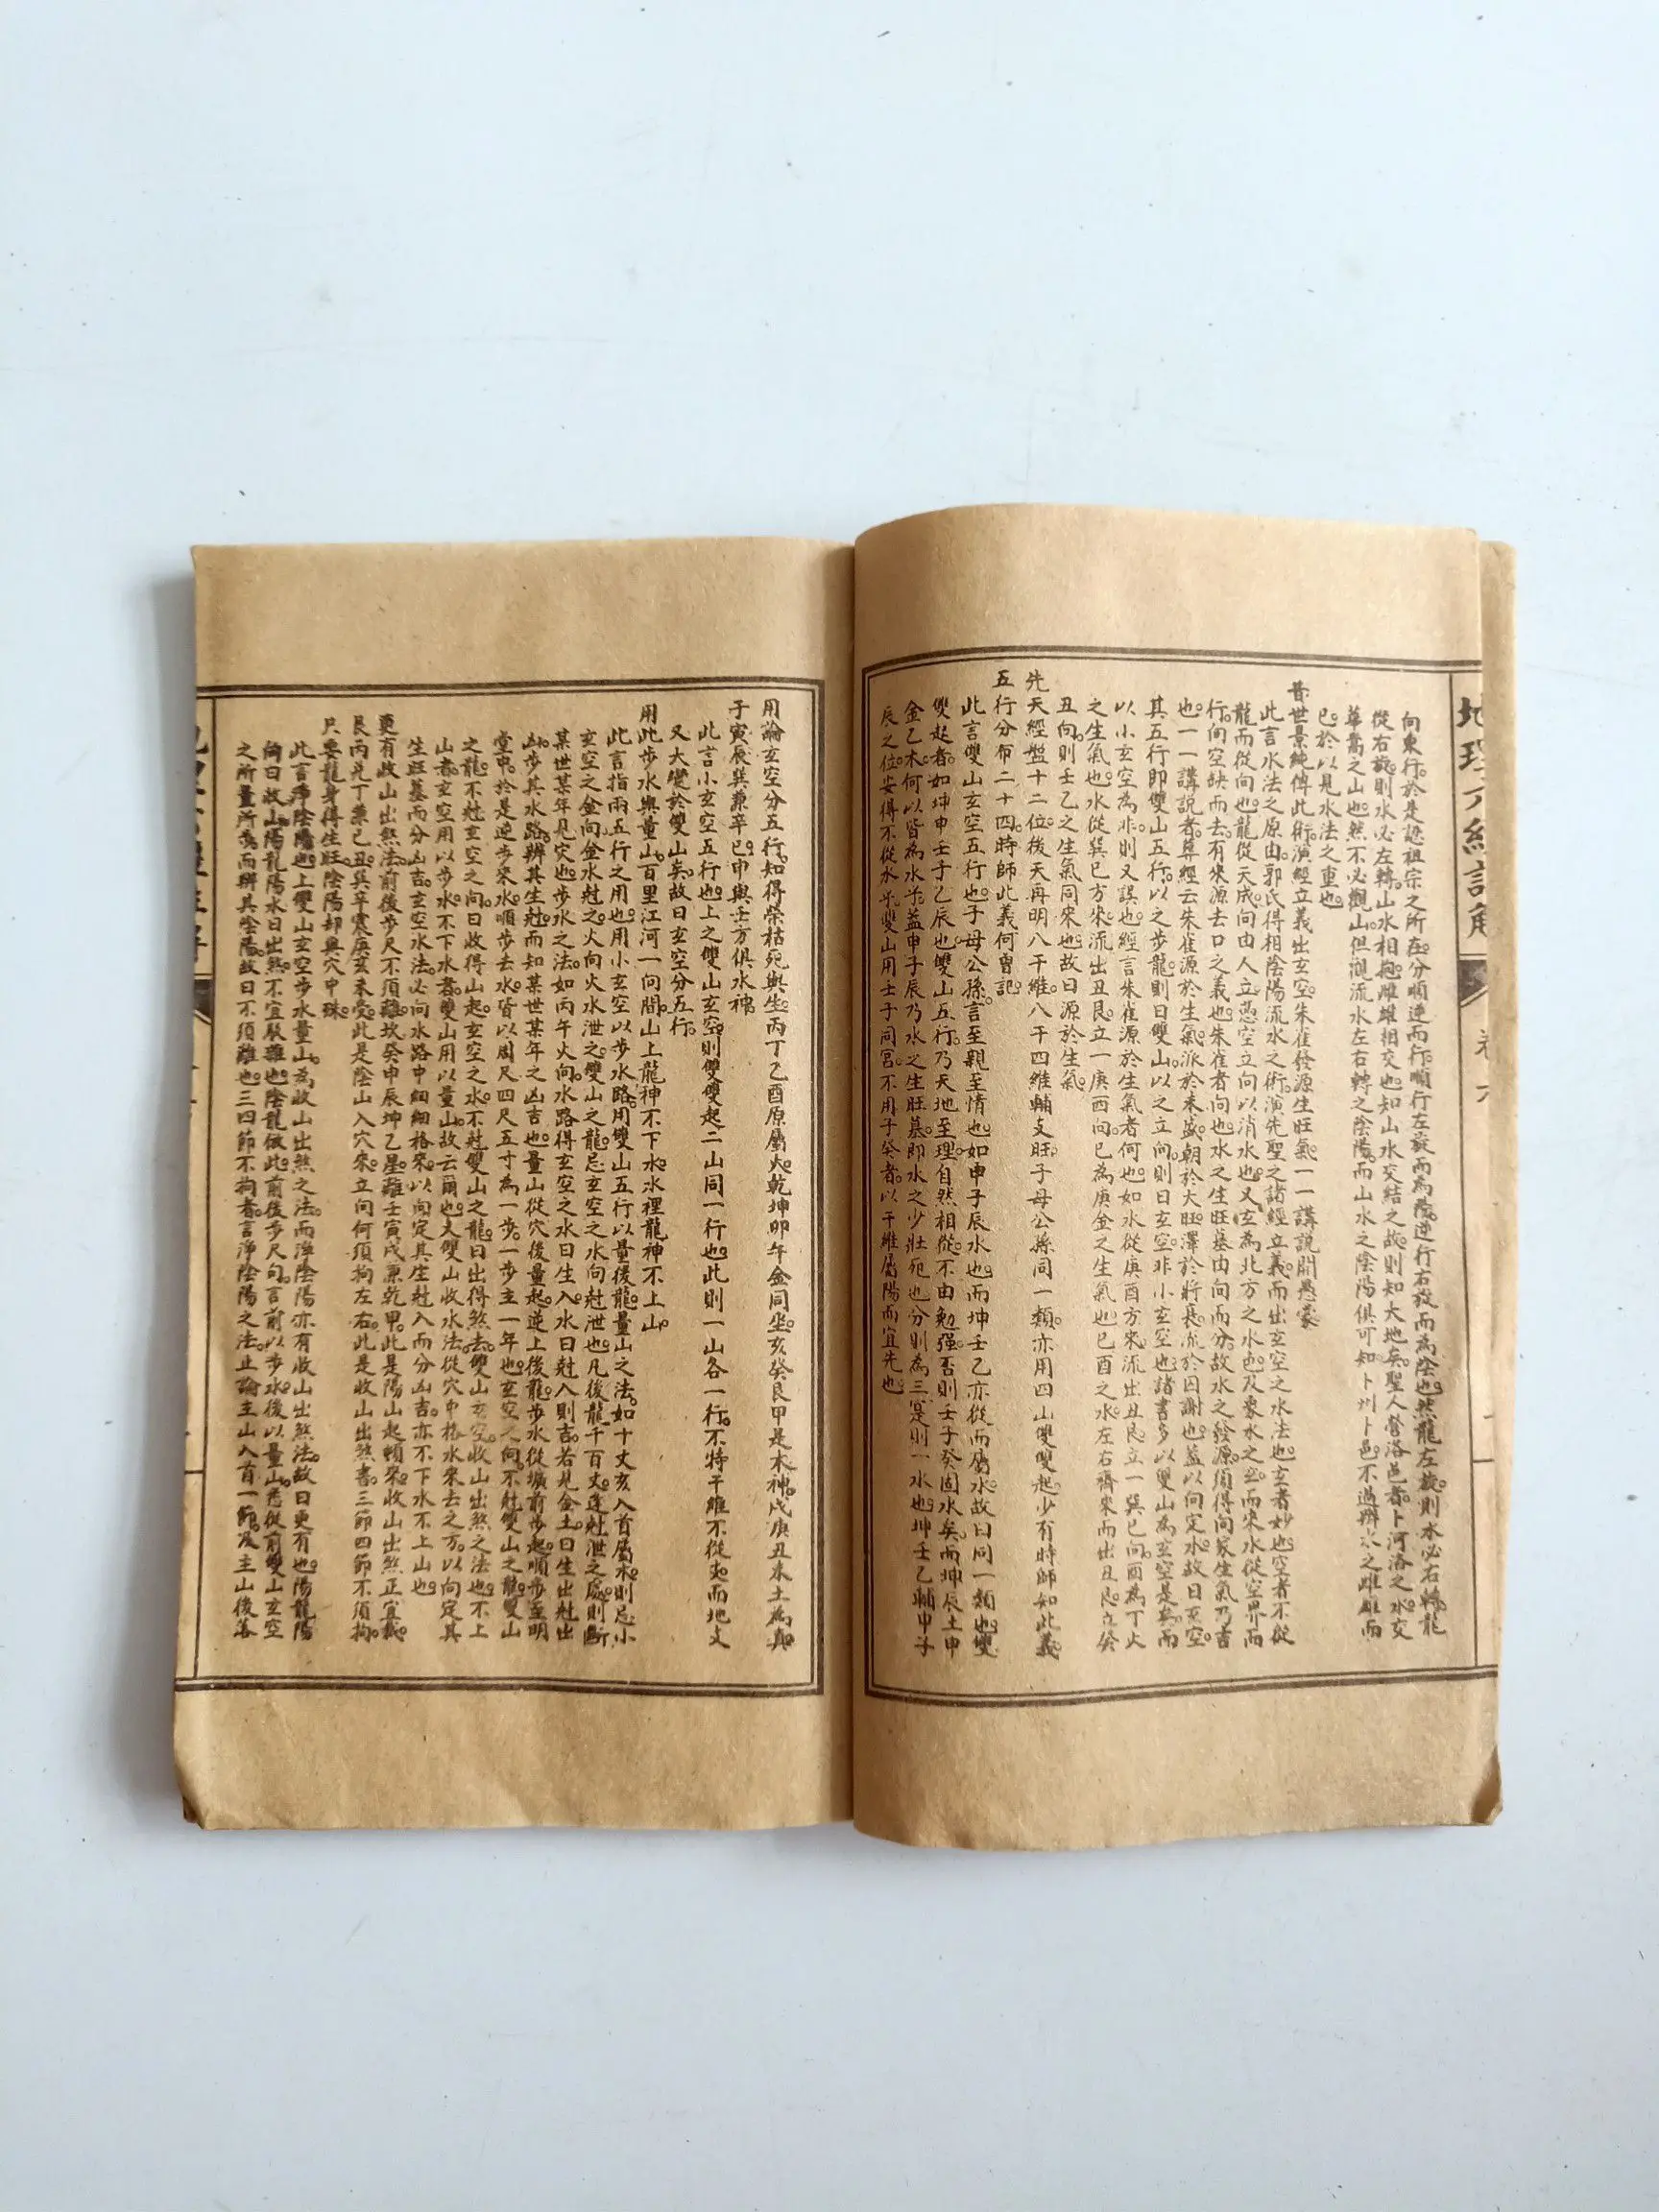 地理六經註解
卷六
向東行於是認祖宗之所在分順逆而行順行左旋而為陽逆行右旋而為陰也然龍左旋則水必右轉龍
從右旋則水必左轉山水相抱雌雄相交也知山水交結之故則知大地矣聖人營洛邑者卜河洛之水交
華嵩之山也然不必觀山但觀流水左右轉之陰陽而山水之陰陽俱可知卜州卜邑不過辨水之雌雄而
已於以見水法之重也
昔世景純傳此術演經立義出玄空朱雀發源生旺氣一一講說開愚蒙
此言水法之原由郭氏得相陰陽流水之術演先聖之諸經立義而出玄空之水法也玄者妙也空者不從
龍而從向也龍從天成向由人立憑空立向以消水也又玄為北方之水色及象水之玄而來水從空界而
行向空缺而去有來源去口之義也朱雀者向也水之生旺墓由向而分故水之發源須得向家生氣乃吉
也一一講說者葬經云朱雀源於生氣派於未盛朝於大旺澤於將衰流於囚謝也蓋以向定水故曰玄空
其五行即雙山五行以之步龍則曰雙山以之立向則曰玄空非小玄空也諸書多以雙山為玄空是矣而
以小玄空為非則又誤也經言朱雀源於生氣者何也如水從庚酉方來流出丑艮立一巽巳向酉為丁火
之生氣也水從巽巳方來流出丑艮立一庚酉向巳為庚金之生氣也巳酉之水左右齊來而出丑艮立癸
丑向則壬乙之生氣同來也故曰源於生氣
先天經盤十二位後天再明八干維八干四維輔支旺子母公孫同一類亦用四山雙雙起少有時師如此義
五行分布二十四時師此義何曾記
此言雙山玄空五行也子母公孫言至親至情也如申子辰水也而坤壬乙亦從而屬水故曰同一類也雙
雙起者如坤申壬子乙辰也雙山五行乃天地至理自然相從不由勉強否則壬子癸固水矣而坤辰土申
金乙木何以皆為水乎蓋申子辰乃水之生旺墓即水之少壯死也分則為三寔則一水也坤壬乙輔申子
辰之位安得不從水乎雙山用壬子同宮不用子癸者以干維屬陽而宜先也
用論玄空分五行知得榮枯死與生丙丁乙酉原屬火乾坤卯午金同坐亥癸艮甲是木神戌庚丑未土為真
子寅辰巽兼辛巳申與壬方俱水神
此言小玄空五行也上之雙山玄空則雙雙起二山同一行也此則一山各一行不特干維不從支而地支
又大變於雙山矣故曰玄空分五行
用此步水與量山百里江河一向間山上龍神不下水水裡龍神不上山
此言指兩五行之用也用小玄空以步水路用雙山五行以量後龍量山之法如十丈亥入首屬木則忌小
玄空之金向金水尅之火向火水泄之雙山之龍忌玄空之水向尅泄也凡後龍千百丈逢尅泄之處則斷
某世某年見灾也步水之法如丙午火向水路得玄空之水曰生入水曰尅入則吉若見金土曰生出尅出
凶步其水路辨其生尅而知某世某年之凶吉也量山從穴後量起逆上後龍步水從壙前步起順步至明
堂中於是逆步來水順步去水皆以周尺四尺五寸為一步一步主一年也玄空之向不尅雙山之龍雙山
之龍不尅玄空之向曰收得山起玄空之水不尅雙山之龍曰出得煞去雙山玄空收山出煞之法也不上
山者玄空用以步水不下水者雙山用以量山故云爾也夫雙山收水法從穴中格水來去之方以向定其
生旺墓而分凶吉玄空水法必向水路中細細格來以向定其生尅入而分凶吉亦不下水不上山也
更有收山出煞法前後步尺不須離坎癸申辰坤乙星離壬寅戌兼乾甲此是陽山起頓來收山出煞正宜裁
艮丙兌丁兼巳丑巽辛震庚亥未受此是陰山入穴來立向何須拘左右此是收山出煞書三節四節不須拘
只要龍身得生旺陰陽却與穴中殊
此言淨陰陽也上雙山玄空步水量山為收山出煞之法而淨陰陽亦有收山出煞法故曰更有也陽龍陽
向曰收山陽龍陽水曰出煞不宜駁雜也陰龍倣此前後步尺句言前以步水後以量山悉從前雙山玄空
之所量所步而辨其陰陽故曰不須離也三四節不拘者言淨陰陽之法止論主山入首一節及主山後落